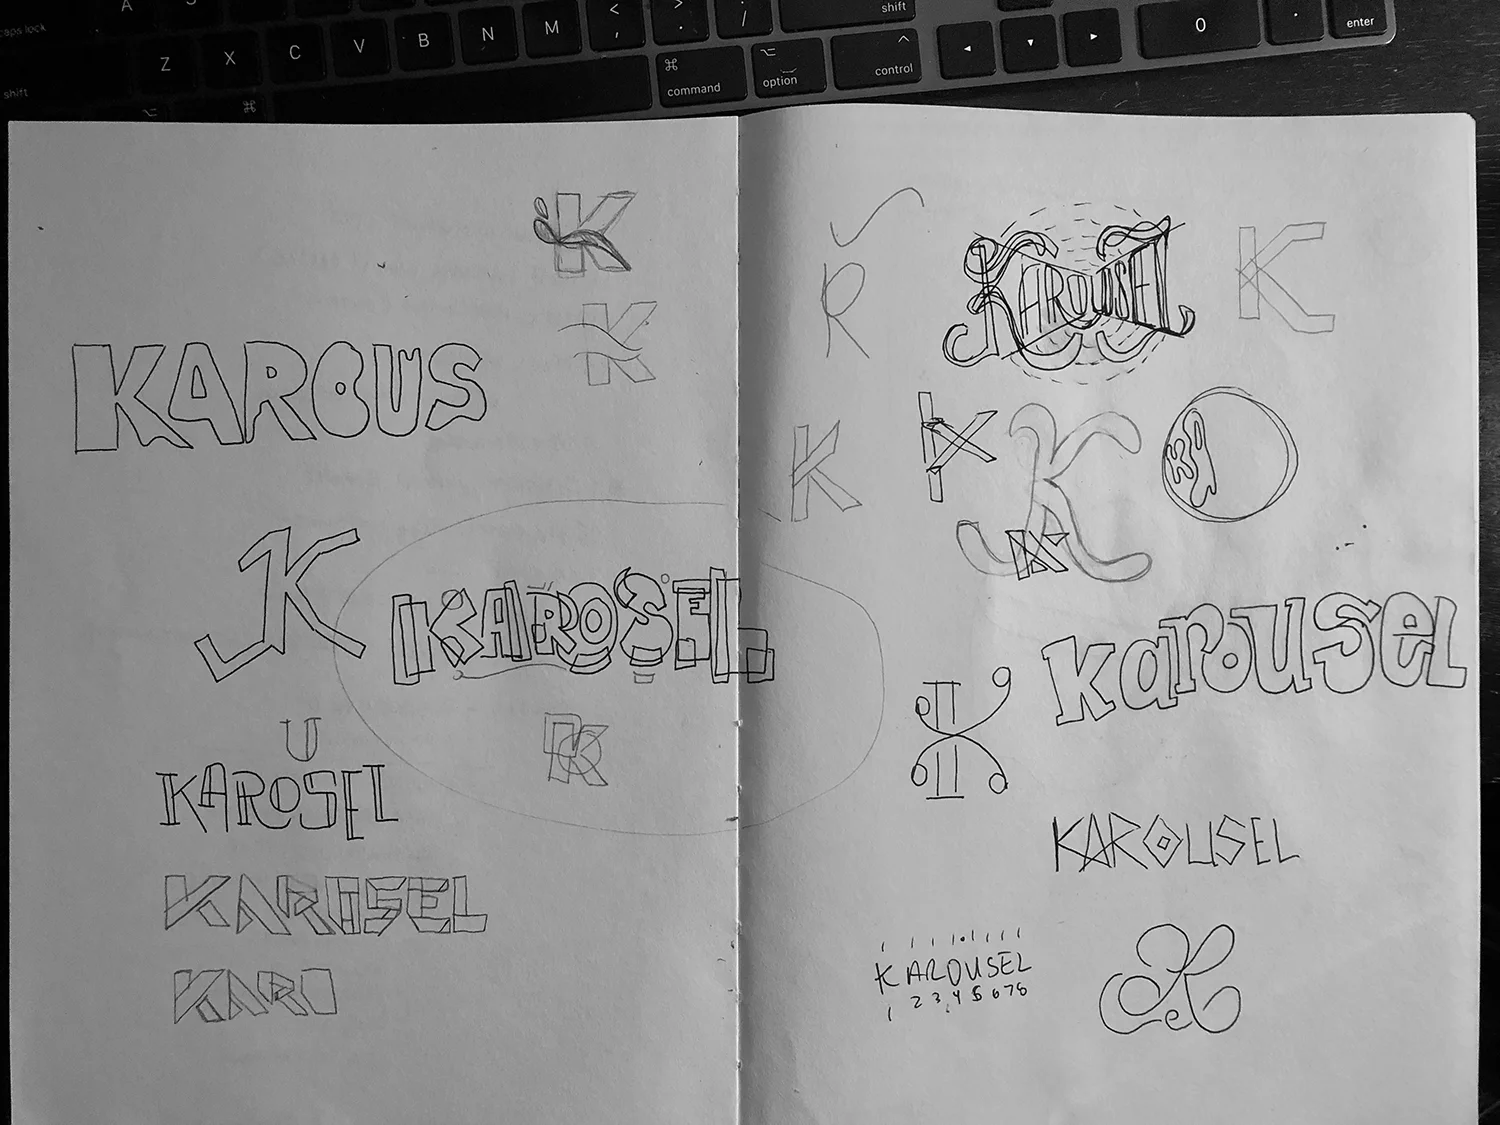 A
caps lock
shift
Z X C V B N M < , > . / shift
⌘ command
⌥ option
^ control
◂ ▾ ▸
0 . enter
⌥ ⌘
K
K
KAROUS
K
KAROSEL
K
U
KAROSEL
KAROUSEL
KARO
R
KAROUSEL
K
K
K
K
K
Karousel
K
KAROUSEL
KAROUSEL
1 2 3 4 5 6 7 8
K